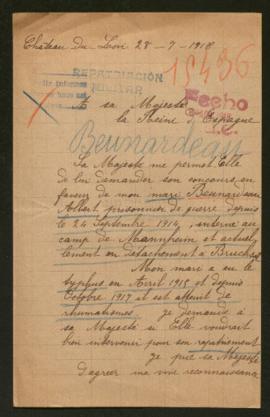 Chateau du Loir 28-7-1918
REPATRIACIÓN
MILITAR
15436
Fecho
A sa Majesté
la Reine d'Espagne
Beunardeau
La Majesté me permet Elle
de lui demander son concours en
faveur de mon mari Beunardeau
Albert prisonnier de guerre depuis
le 24 Septembre 1914, interné au
camp de Mannheim et actuel
lement en détachement à
Mon mari a eu le
typhus en Avril 1915 et depuis
Octobre 1917 il est atteint de
rhumatismes. je demande à
sa Majesté si Elle voudrait
bien intervenir pour son rapatriement
je prie sa Majesté
d'agréer ma vive reconnaissance